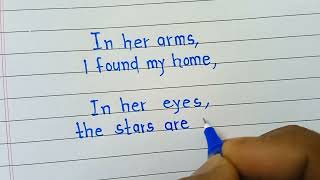 In her arms,
I found my home,
In her eyes,
the stars are